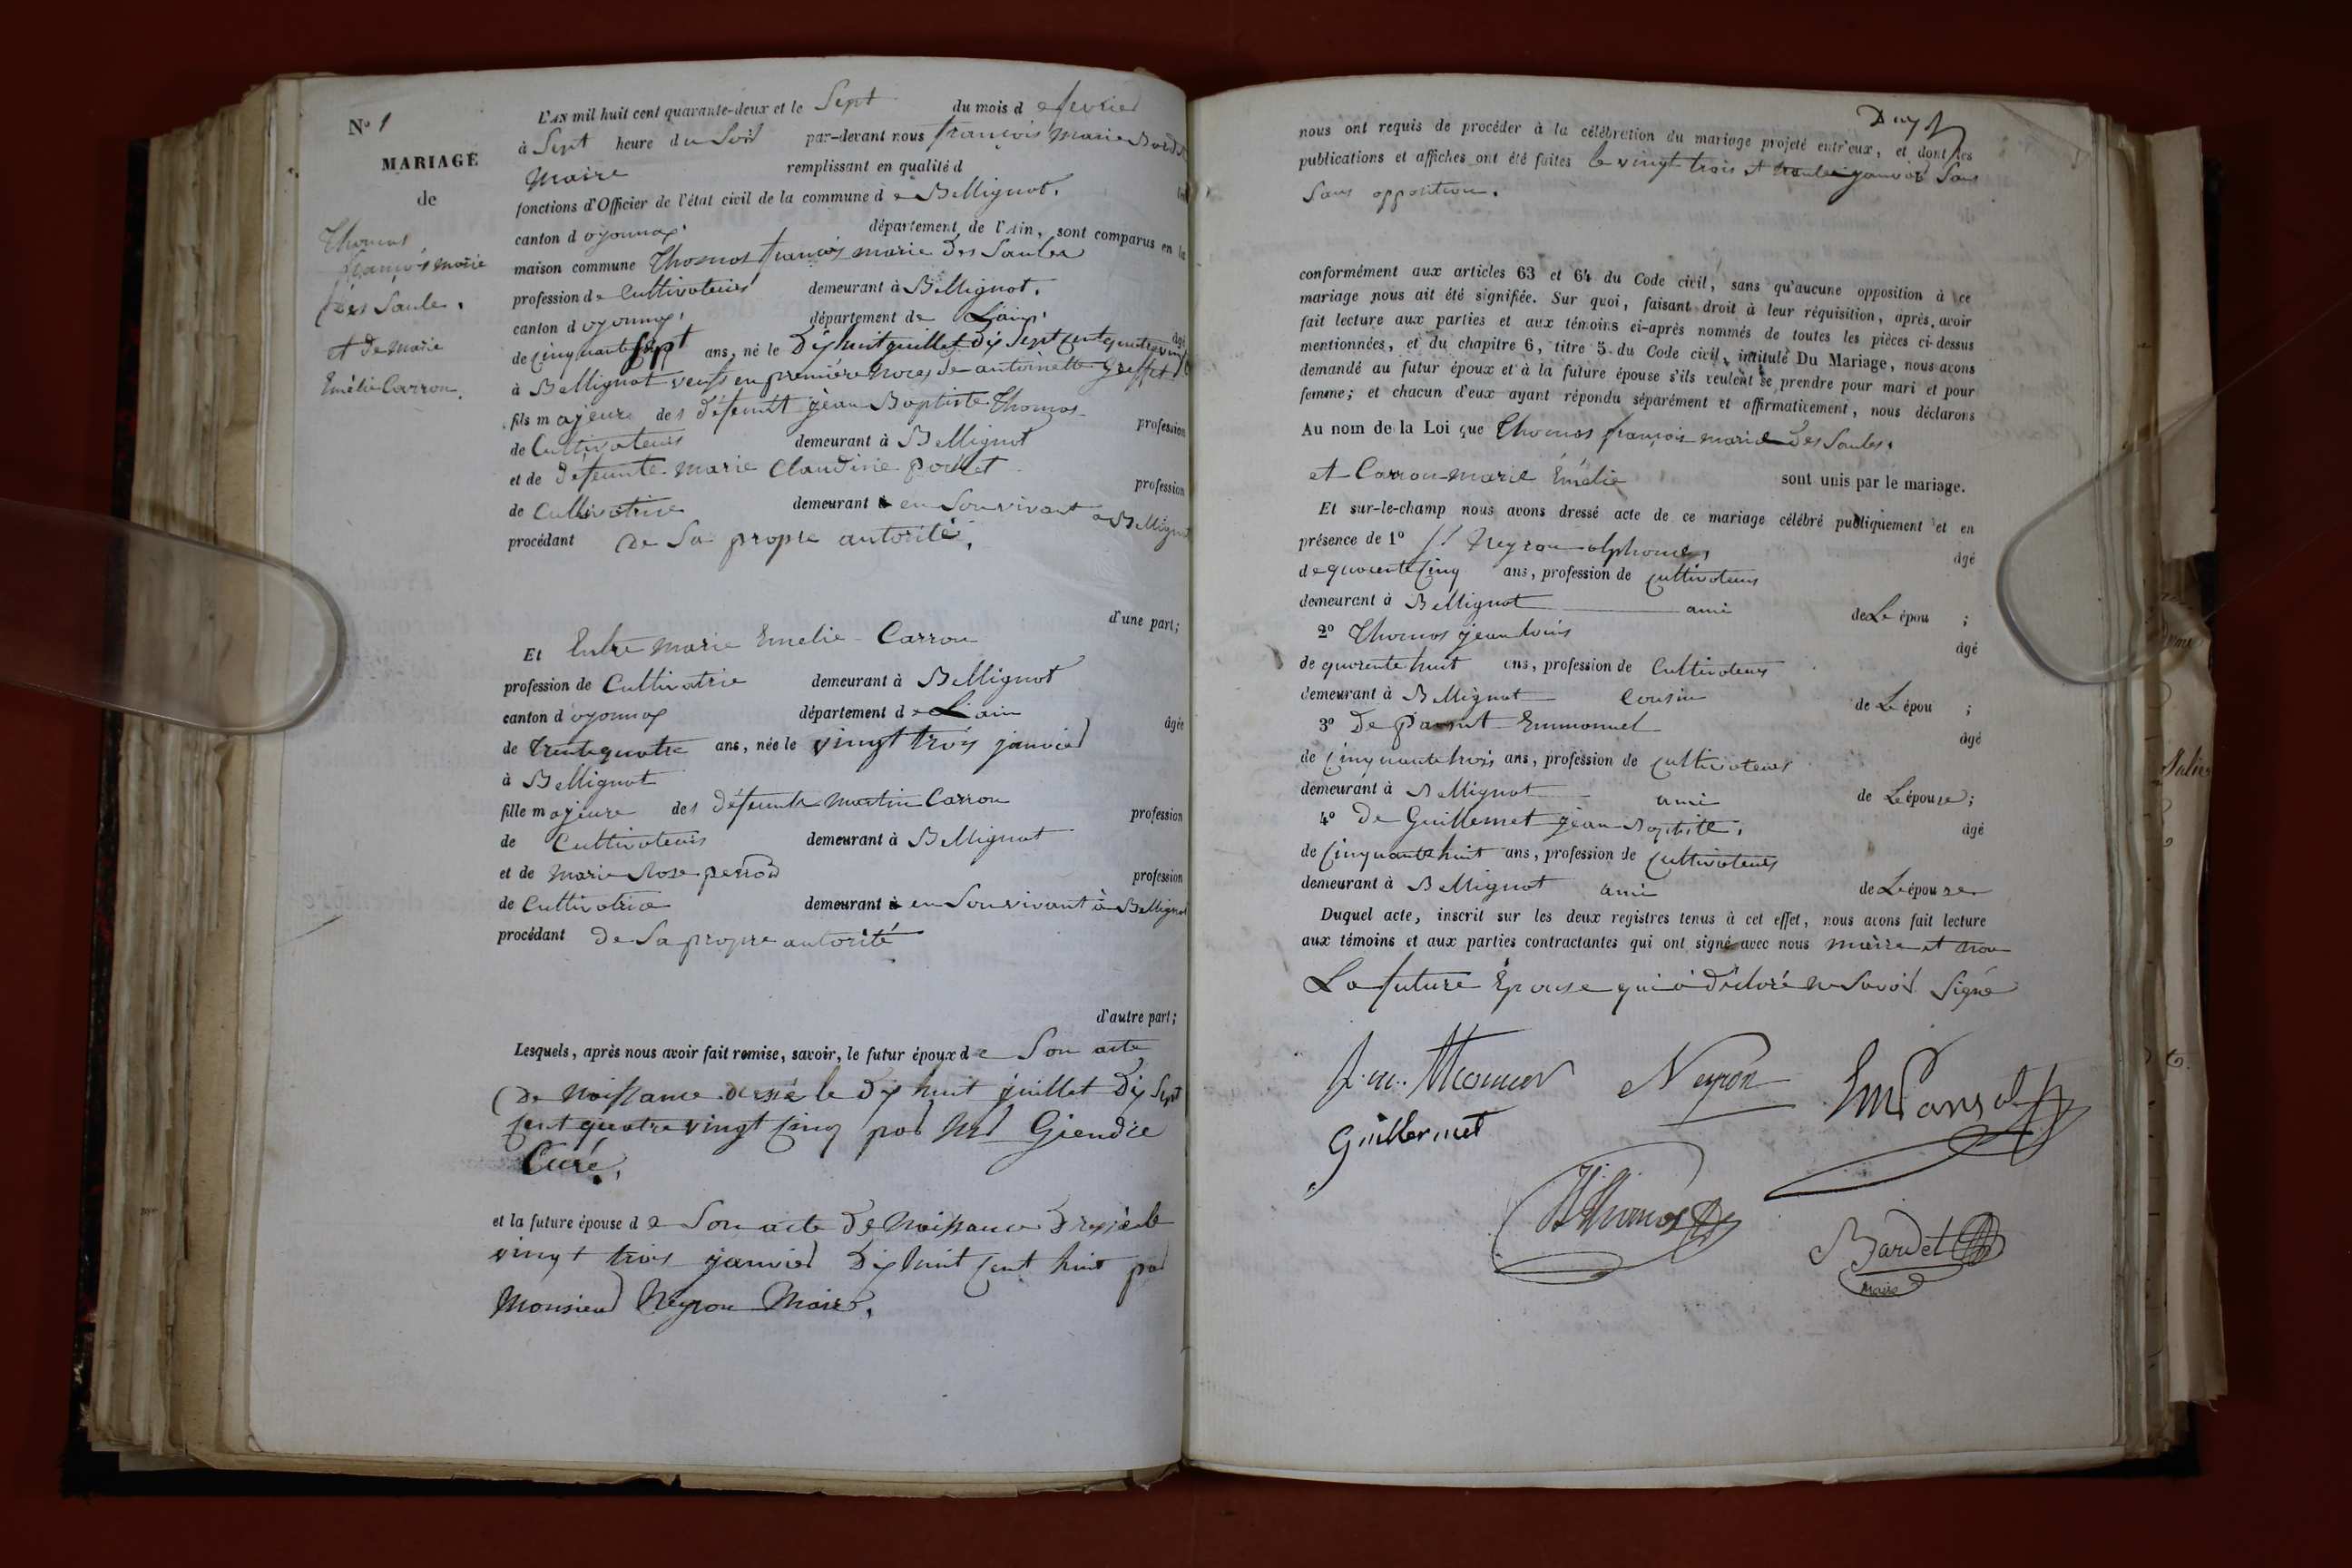 N° 1
MARIAGE
de
Thomas
françois marie
Des Saules.
et de marie
Emélie Carron.
L'AN mil huit cent quarante-deux et le Sept du mois d e fevrier
à Sept heure du Soir par-devant nous françois Marie Bardet
Maire remplissant en qualité d
fonctions d'Officier de l'état civil de la commune d e Bellignat.
canton d oyonnax. département de l'Ain, sont comparus en la
maison commune Thomas françois marie des Saules
profession de Cultivateur demeurant à Bellignat.
canton d oyonnax, département de Lain. âgé
de Cinquante Sept ans, né le Dix huit juillet Dix Sept Cent quatre vingt
à Bellignat veuf en première noces de antoinette Greffet
fils majeur des défunt jean Baptiste Thomas profession
de Cultivateur demeurant à Bellignat
et de défeunte marie Claudine pochet profession
de Cultivatrice demeurant à en Son vivant a Bellignat
procédant de Sa propre autorité.
d'une part;
Et Entre marie Emelie Carron
profession de Cultivatrice demeurant à Bellignat
canton d'oyonnax département d e Lain âgée
de Trente quatre ans, née le vingt trois janvier
à Bellignat
fille majeure des défeunt martin Carron profession
de Cultivateur demeurant à Bellignat
et de marie Rose perrod profession
de Cultivatrice demeurant à en Son vivant à Bellignat
procédant de Sa propre autorité
d'autre part;
Lesquels, après nous avoir fait remise, savoir, le futur époux d e Son acte
de Naissance dressé le dix huit juillet Dix Sept
Cent quatre vingt Cinq par
Curé.
et la future épouse d e Son acte De Naissance Dressé le
vingt trois janvier Dix huit Cent huit par
Monsieur Neyron Maire.
nous ont requis de procéder à la célébration du mariage projeté entr'eux, et dont les
publications et affiches ont été faites le vingt trois et trente janvier Sans
Sans opposition.
conformément aux articles 63 et 64 du Code civil, sans qu'aucune opposition à ce
mariage nous ait été signifiée. Sur quoi, faisant droit à leur réquisition, après avoir
fait lecture aux parties et aux témoins ci-après nommés de toutes les pièces ci-dessus
mentionnées, et du chapitre 6, titre 5 du Code civil, intitulé Du Mariage, nous avons
demandé au futur époux et à la future épouse s'ils veulent se prendre pour mari et pour
femme; et chacun d'eux ayant répondu séparément et affirmativement, nous déclarons
Au nom de la Loi que Thomas françois marie des Saules.
et Carron marie Emélie sont unis par le mariage.
Et sur-le-champ nous avons dressé acte de ce mariage célébré publiquement et en
présence de 1° Neyron alphonse, âgé
de quarente Cinq ans, profession de cultivateur
demeurant à Bellignat ami de Le épou ;
2° Thomas jean louis âgé
de quarente huit ans, profession de Cultivateur
demeurant à Bellignat Cousin de Le épou ;
3° De pansut Emmanuel âgé
de Cinquante trois ans, profession de cultivateur
demeurant à Bellignat ami de Lépouse;
4° De Guillermet jean Baptiste. âgé
de Cinquante huit ans, profession de cultivateur
demeurant à Bellignat ami de Lépouse
Duquel acte, inscrit sur les deux registres tenus à cet effet, nous avons fait lecture
aux témoins et aux parties contractantes qui ont signé avec nous maire et non
La future Epouse qui a déclaré ne Savoir Signé
Neyron
Guillermet
Bardet
Maire